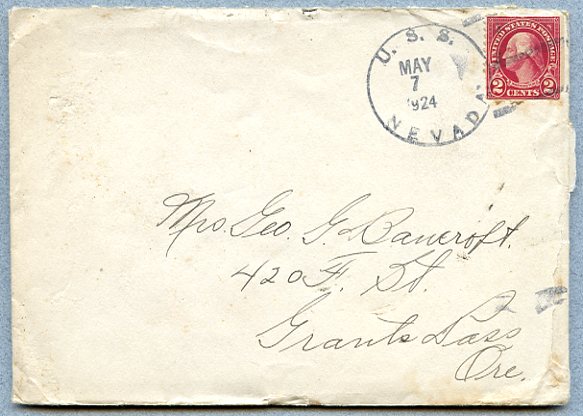 U. S. S.
MAY
7
1924
NEVADA
UNITED STATES POSTAGE
2 CENTS 2
Mrs. Geo. G. Bancroft.
420 F. St.
Grants Pass
Ore.